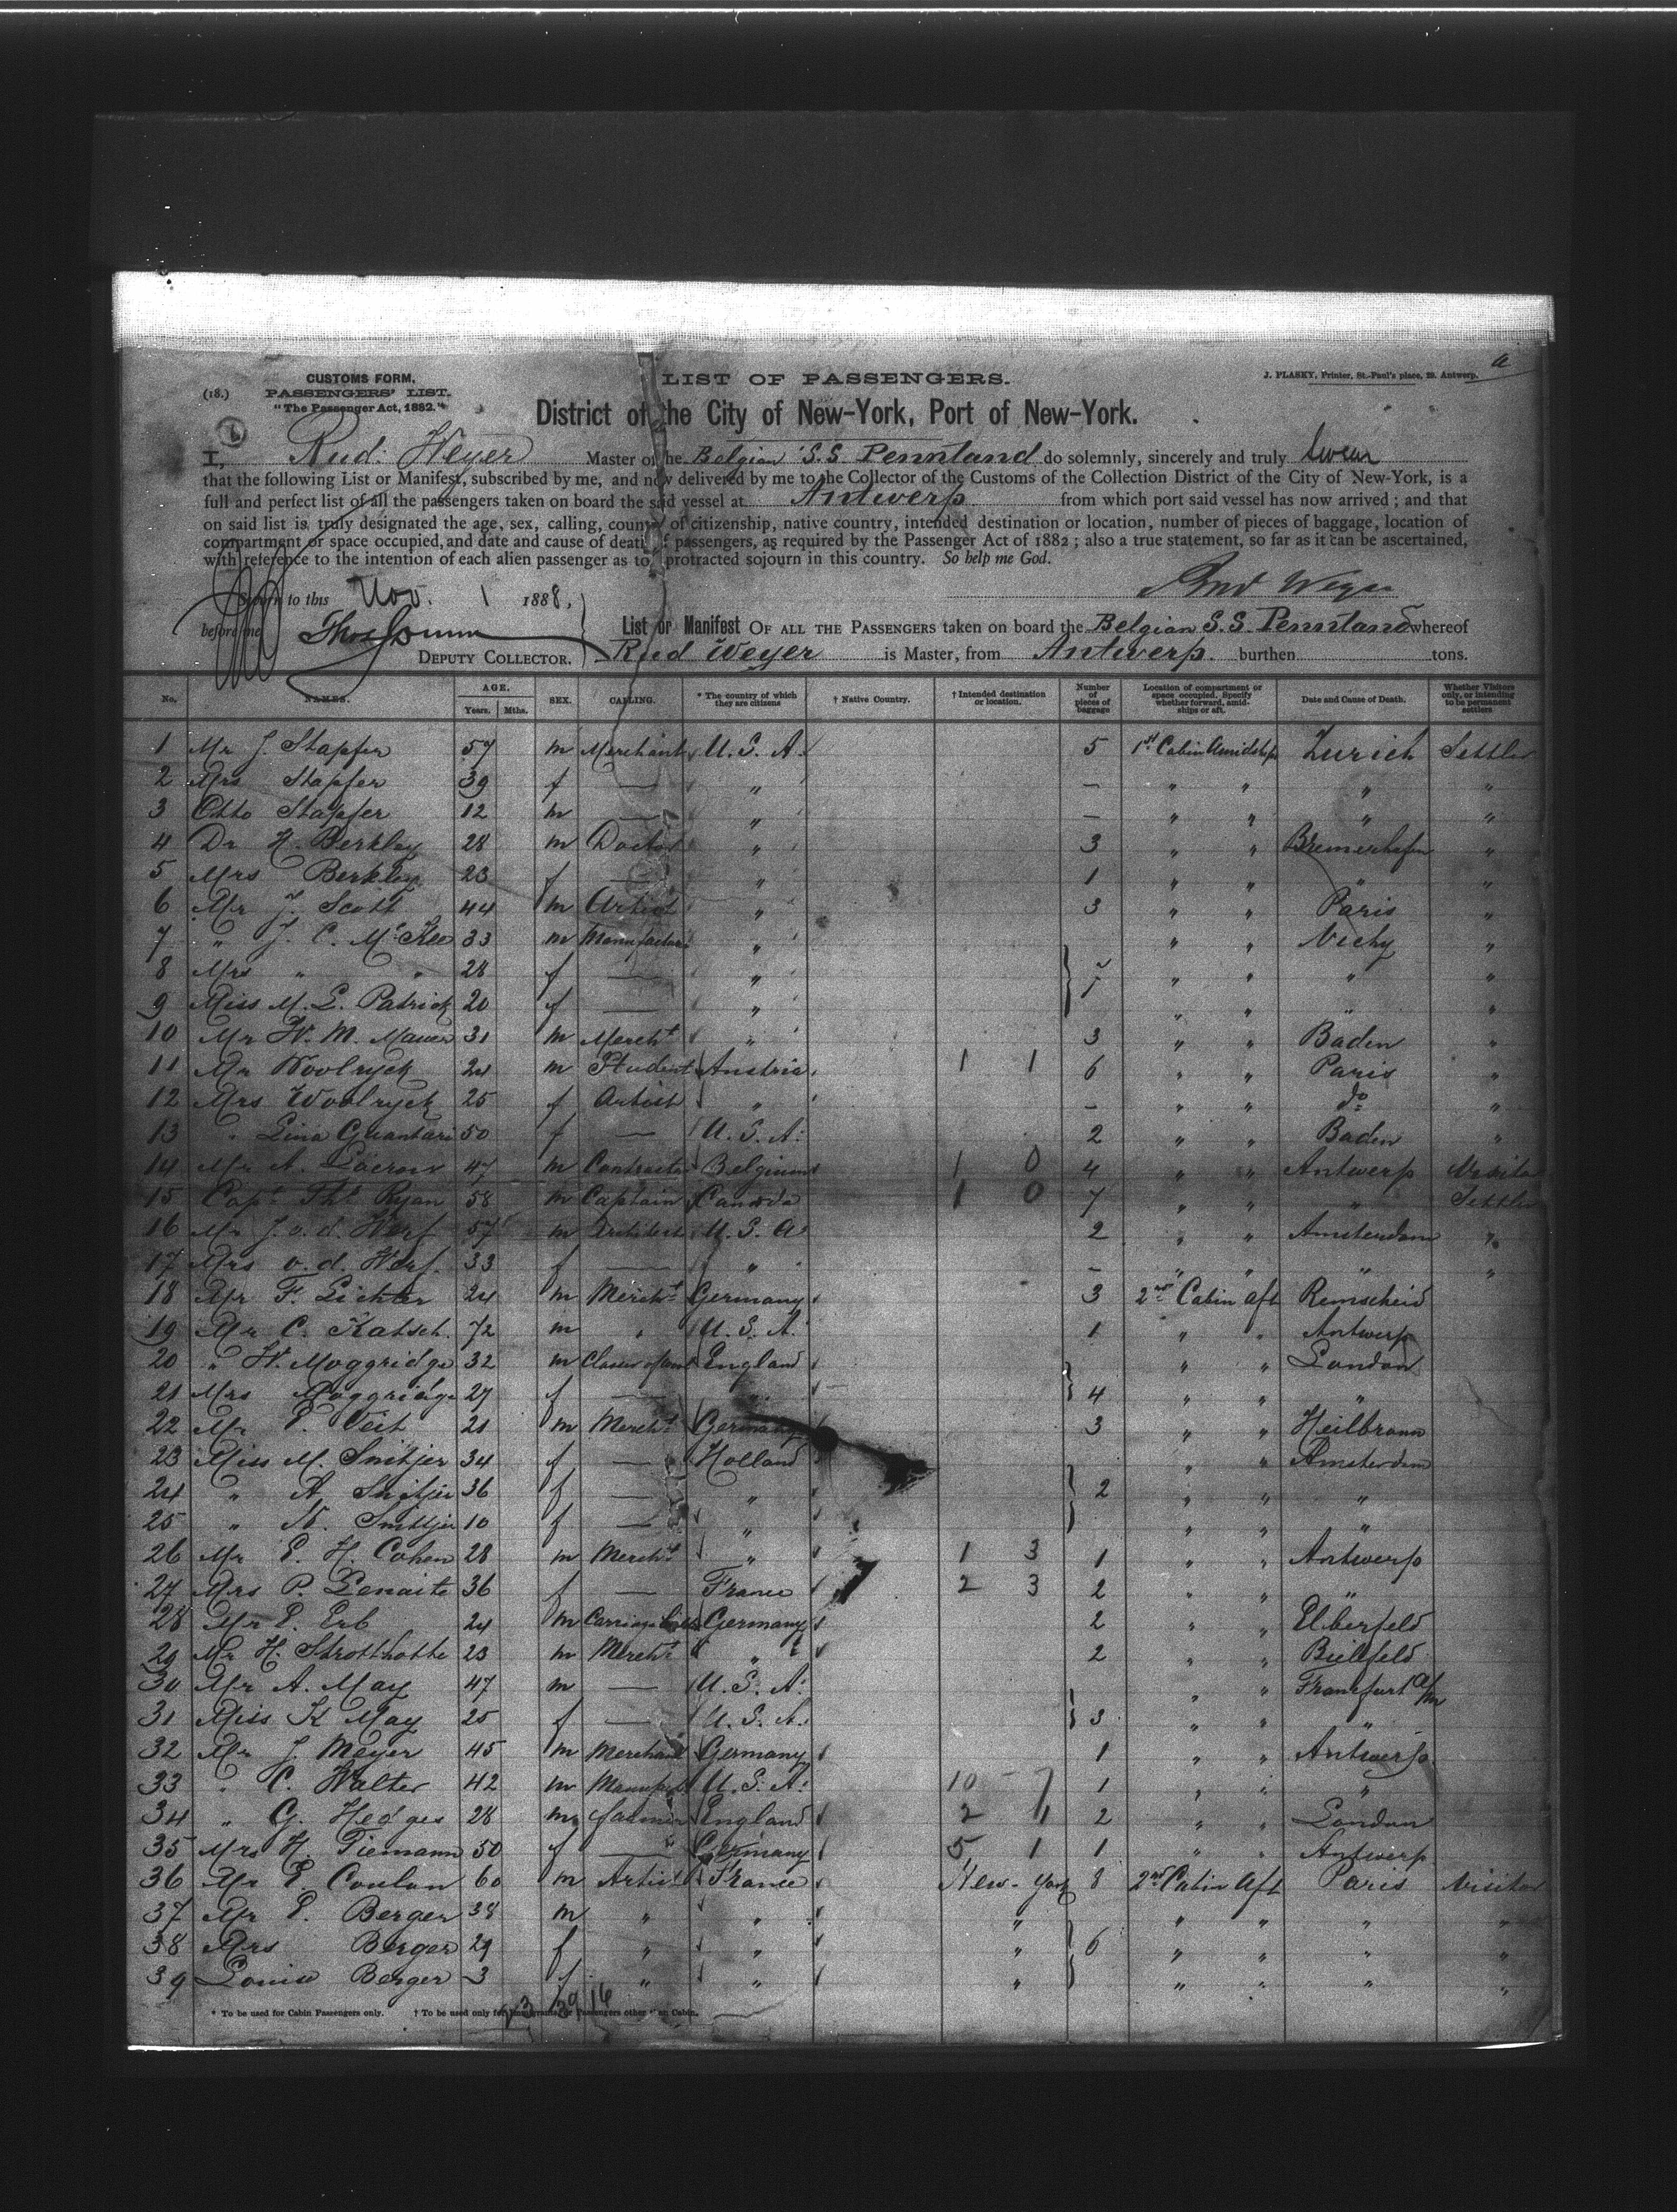 CUSTOMS FORM.
(18.) PASSENGERS' LIST.
"The Passenger Act, 1882."
LIST OF PASSENGERS.
J. PLASKY, Printer, St.-Paul's place, 28. Antwerp.
District of the City of New-York, Port of New-York.
I, Rud: Weyer Master of the Belgian S.S. Pennland do solemnly, sincerely and truly swear
that the following List or Manifest, subscribed by me, and now delivered by me to the Collector of the Customs of the Collection District of the City of New-York, is a
full and perfect list of all the passengers taken on board the said vessel at Antwerp from which port said vessel has now arrived ; and that
on said list is truly designated the age, sex, calling, county of citizenship, native country, intended destination or location, number of pieces of baggage, location of
compartment or space occupied, and date and cause of death of passengers, as required by the Passenger Act of 1882 ; also a true statement, so far as it can be ascertained,
with reference to the intention of each alien passenger as to protracted sojourn in this country. So help me God.
Rud Weyer
Sworn to this Nov. 1 1888,
before me
DEPUTY COLLECTOR.
List or Manifest OF ALL THE PASSENGERS taken on board the Belgian S.S. Pennland whereof
Rud Weyer is Master, from Antwerp. burthen tons.
No. NAMES. AGE. Years. Mths. SEX. CALLING. * The country of which they are citizens † Native Country. † Intended destination or location. Number of pieces of baggage Location of compartment or space occupied. Specify whether forward, amidships or aft. Date and Cause of Death. Whether Visitors only, or intending to be permanent settlers
1 Mr J. Stapfer 57 m Merchant U. S. A. 5 1st Cabin Amidship Zurich Settler
2 Mrs Stapfer 39 f — " — " " " "
3 Otto Stapfer 12 m — " — " " " "
4 Dr H. Berkley 28 m Doctor " 3 " " Bremerhafen "
5 Mrs Berkley 23 f — " 1 " " " "
6 Mr J. Scott 44 m Artist " 3 " " Paris "
7 " J. C. McKee 33 m Manufactur " " " Vichy "
8 Mrs " " 28 f — " " " " "
9 Miss M. E. Patrick 20 f — " " " " "
10 Mr W. M. Mauer 31 m Mercht " 3 " " Baden "
11 Mr Woolryck 24 m Student Austria 1 1 6 " " Paris "
12 Mrs Woolryck 25 f Artist " — " " do "
13 " Lina Guantari 50 f — U. S. A. 2 " " Baden "
14 Mr A. Lacroix 47 m Contractor Belgium 1 0 4 " " Antwerp Visitor
15 Capt Tht Ryan 58 m Captain Canada 1 0 7 " " " Settler
16 Mr J. v. d. Werf 57 m Architect U. S. A 2 " " Amsterdam "
17 Mrs v. d. Werf. 33 f — " — " " " "
18 Mr F. Lichter 24 m Mercht Germany 3 2nd Cabin aft Remscheid
19 Mr C. Katsch. 72 m " U. S. A. 1 " " Antwerp
20 " W. Moggridge 32 m England " " London
21 Mrs Moggridge 27 f — " 4 " " "
22 Mr P. Veit 21 m Mercht Germany 3 " " Heilbronn
23 Miss M. Snitjer 34 f — Holland " " Amsterdam
24 " A Snitjer 36 f — " 2 " " "
25 " N. Snitjer 10 f — " " " "
26 Mr E. H. Cohen 28 m Mercht " 1 3 1 " " Antwerp
27 Mrs P. Lenaite 36 f — France 2 3 2 " " "
28 Mr E. Erb 24 m Germany 2 " " Elberfeld
29 Mr H. Strotthotte 23 m Mercht " 2 " " Bielfeld
30 Mr A. May 47 m — U. S. A. " " Frankfurt a/m
31 Miss K May 25 f — U. S. A. 3 " " "
32 Mr J. Meyer 45 m Merchant Germany 1 " " Antwerp
33 " C. Walter 42 m Manufact U. S. A. 10 7 1 " " "
34 " G. Hedges 28 m farmer England 2 1 2 " " London
35 Mrs H. Tiemann 50 f — Germany 5 1 1 " " Antwerp
36 Mr E. Coulon 60 m Artist France New-York 8 2nd Cabin Aft Paris Visitor
37 Mr E. Berger 38 m " " " " " " "
38 Mrs Berger 29 f " " " 6 " " " "
39 Louise Berger 3 f " " " " " " "
* To be used for Cabin Passengers only. † To be used only for Immigrants or Passengers other than Cabin.
23 39 16